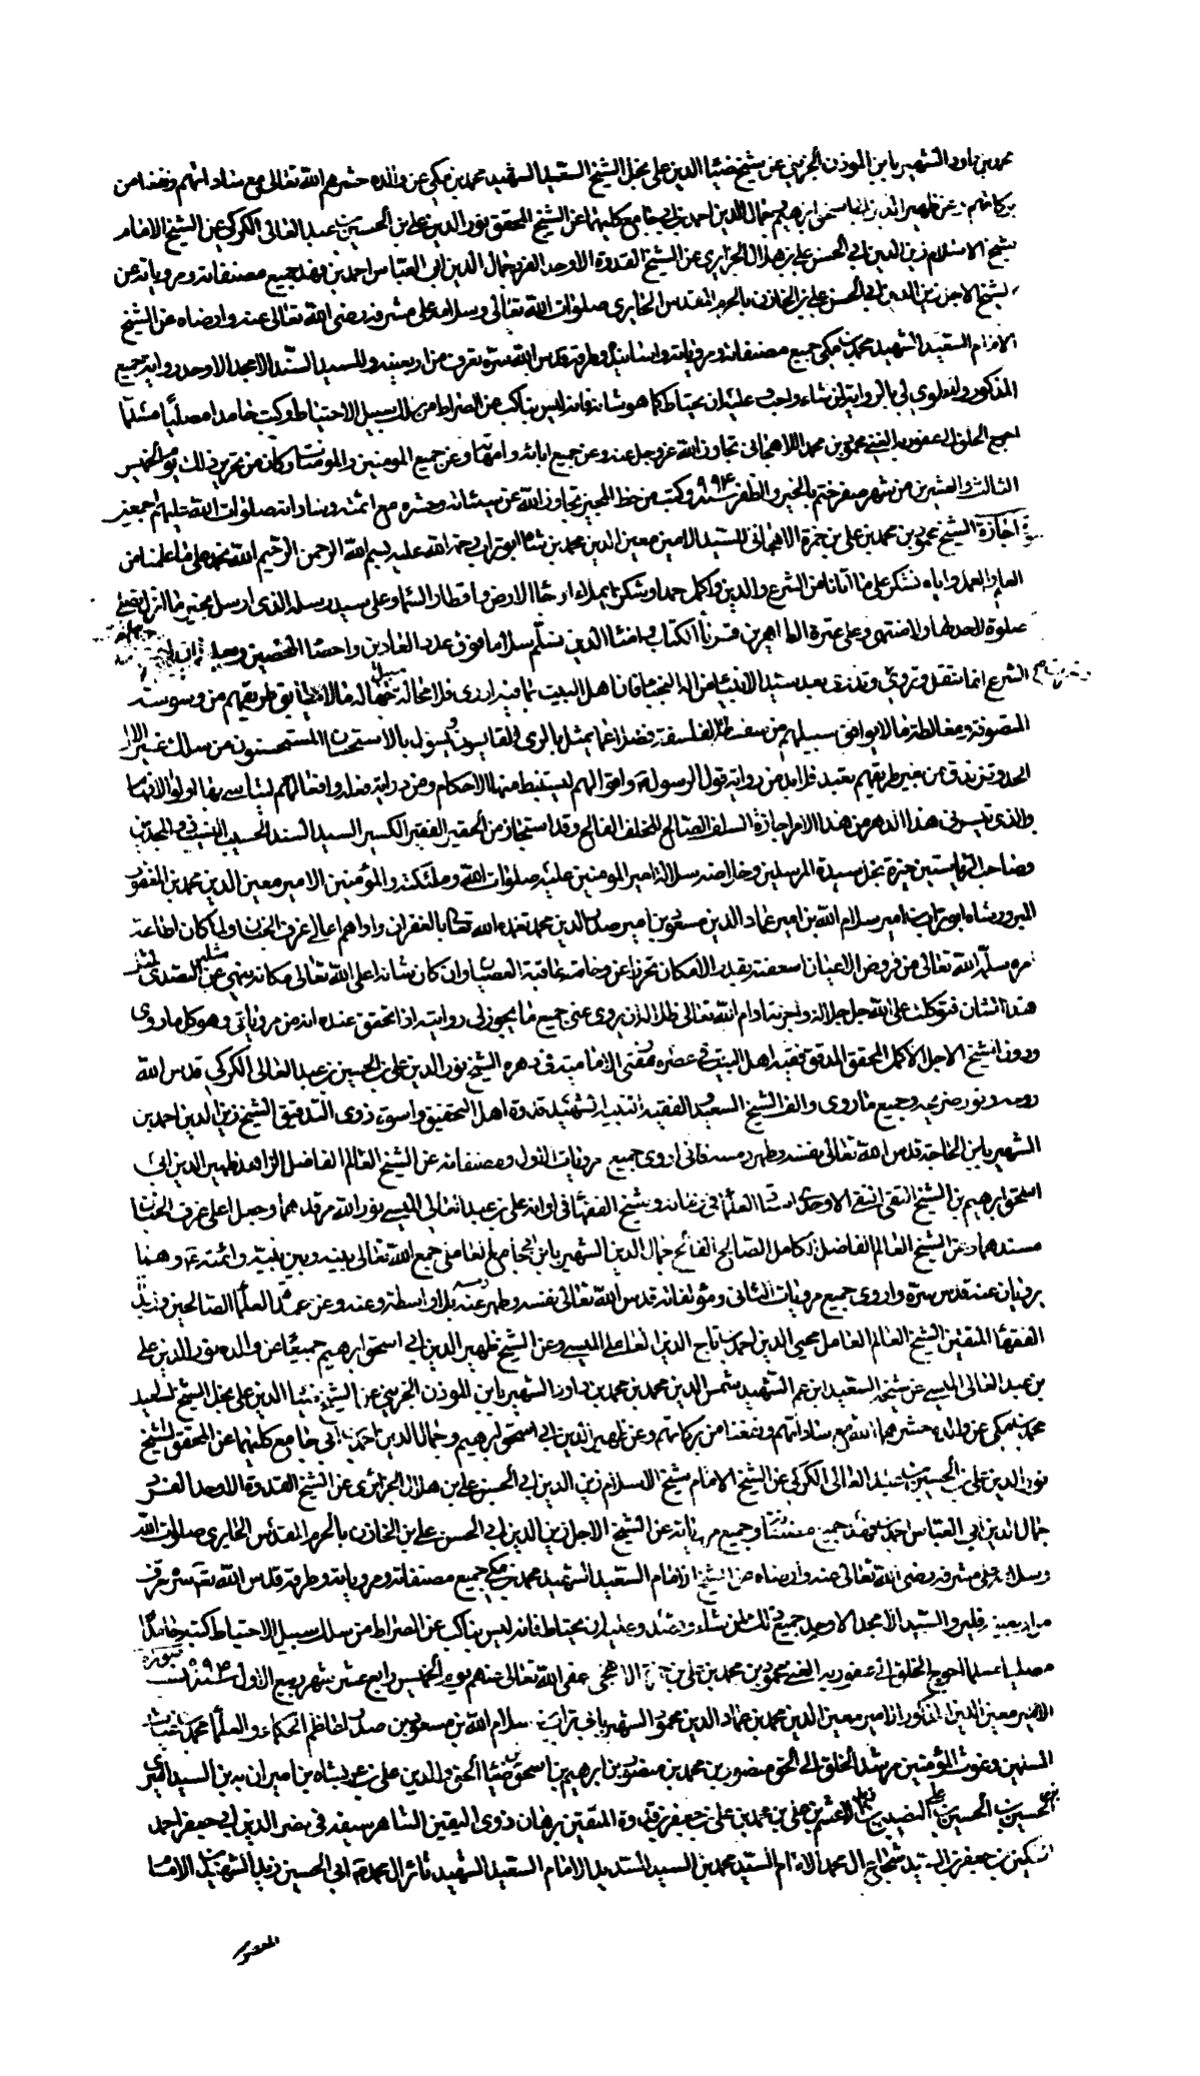 محمد بن داود الشهير بابن الموذن الجزيني عن شيخه ضياء الدين علي نجل الشيخ السعيد الشهيد محمد بن مكي عن والده حشرهم الله تعالى مع ساداتهم ونفعنا من
بركاتهم وعن ظهير الدين ابي اسحق ابرهيم وجمال الدين احمد بن ابي جامع كليهما عن الشيخ المحقق نور الدين علي بن الحسين بن عبد العالي الكركي عن الشيخ الامام
شيخ الاسلام زين الدين ابي الحسن علي بن هلال الجزايري عن الشيخ القدوة الاوحد الفرد جمال الدين ابي العباس احمد بن فهد جميع مصنفاته ومروياته عن
الشيخ الاجل زين الدين ابي الحسن علي بن الخازن بالحرم المقدس الحايري صلوات الله تعالى وسلامه على مشرفه رضي الله تعالى عنه وارضاه عن الشيخ
الامام السعيد الشهيد محمد بن مكي جميع مصنفاته ومروياته واسانيده وطرقه قدس الله سره تعرف من اربعينه وللسيد السند الامجد الاوحد رواية جميع
المذكور ولغيره لي بالرواية لمن شاء واحب وعليه ان يحتاط كما هو شانه فانه ليس بناكب عن الصراط من سلك سبيل الاحتياط وكتب حامدا مصليا مسلما
احوج الخلق الى عفو ربه الغني محمود بن محمد اللاهجاني تجاوز الله عز وجل عنه وعن جميع ابائه وامهاته وعن جميع المومنين والمومنات وكان من تحرير ذلك يوم الخميس
الثالث والعشرين من شهر صفر ختم بالخير والظفر سنة ٩٩٤ وكتب من خط المجيز تجاوز الله عن سيئاته وحشره مع ائمته وساداته صلوات الله عليهم اجمعين
صورة اجازة الشيخ محمود بن محمد بن علي بن حمزة اللاهجاني للسيد الامير معين الدين محمد بن شاه ابو تراب رحمة الله عليه بسم الله الرحمن الرحيم الله نحمد على ما علمنا من
العلم والعمل واياه نشكر على ما اتانا من الشرع والدين واكمل حمدا وشكرا يملاء ارجاء الارض واقطار السماء وعلى سيد رسله الذي ارسل بخير ما انزل نصلي
صلوة لا حد لها ولا منتهى وعلى عترة الطاهرين قرناء الكتاب وامناء الدين نسلم سلاما فوق عدد العادين واحصاء المحصين وبعد
الشرع انما ينتقل ويروى بعد سيد الانبياء من اله النجباء فان اهل البيت بما فيه ادرى فلا محالة
المتصوفة ومغالطة ما لا يوافق سبيلهم من سفسطة الفلسفة فضلا عما يمثل بالراى
الحد وتزندق من غير طريقهم يعتبد فلا بد من رواية قول الرسول واقوالهم ليستنبط منها الاحكام ومن دراية فعله وافعالهم ليتاسى بها اولوا الافهام
والذي تيسر في هذا الدهر من هذا الامر اجازة السلف الصالح للخلف الفالح وقد استجاز من الحقير الفقير الكسير السيد السند الحسيب النسيب
وصاحب الرياستين خيرة نجل سيدة المرسلين وخلاصة سلالة امير المومنين عليه صلوات الله وملئكته والمؤمنين الامير معين الدين محمد بن المغفور
المبرور شاه ابو تراب بن امير سلام الله بن امير عماد الدين مسعود بن امير صدر الدين محمد تغمده الله تعالى بالغفران واداهم اعالي غرف الجنان ولما كان اطاعة
امره سلمه الله تعالى من فروض الاعيان اسعفته بقدر الامكان تحرزا عن وخامة عاقبة العصيان وان كان شانه اعلى الله تعالى مكانه ينهى عن التصدي لمثل
هذا الشان فتوكلت على الله جل جلاله واجزته ادام الله تعالى ظلاله ان يروي عني جميع ما يجوز لي روايته اذا تحقق عنده انه من مروياتي وهو كل ما روى
ودون الشيخ الاجل الاكمل المحقق المدقق فقيه اهل البيت في عصره ومفتي الامامية في دهره الشيخ نور الدين علي بن الحسين بن عبد العالي الكركي قدس الله
روحه ونور ضريحه وجميع ما روى والف الشيخ السعيد الفقيه النبيه الشهيد قدوة اهل التحقيق واسوة ذوي التدقيق الشيخ زين الدين احمد بن
الشهير بابن الحاجة قدس الله تعالى نفسه وطهر رمسه فاني اروي جميع مرويات الاول ومصنفاته عن الشيخ العالم الفاضل الزاهد ظهير الدين ابي
اسحق ابرهيم بن الشيخ التقي النقي الاوحد استاد العلماء في زمانه وشيخ الفقهاء في اوانه علي بن عبد العالي الميسي نور الله مرقدهما وجعل اعلى غرف الجنان
مسندهما وعن الشيخ العالم الفاضل الكامل الصالح الفالح جمال الدين الشهير بابن ابي جامع العاملي جمع الله تعالى بينه وبين نبيه وائمته وهما
يرويان عنه قدس سره واروي جميع مرويات الثاني ومؤلفاته قدس الله تعالى نفسه وطهر رمسه عنه بلا واسطة وعنه وعن عمدة العلماء الصالحين وزبدة
الفقهاء المتقين الشيخ العالم العامل محيي الدين احمد بن تاج الدين العاملي الميسي وعن الشيخ ظهير الدين ابي اسحق ابرهيم جميعا عن والده نور الدين علي
بن عبد العالي الميسي عن شيخه السعيد ابن عم الشهيد شمس الدين محمد بن محمد بن داود الشهير بابن الموذن الجزيني عن الشيخ ضياء الدين علي نجل الشيخ السعيد
محمد بن مكي عن والده حشرهما الله مع ساداتهم ونفعنا من بركاتهم وعن ظهير الدين ابي اسحق ابرهيم وجمال الدين احمد بن ابي جامع كليهما عن المحقق الشيخ
نور الدين علي بن الحسين بن عبد العالي الكركي عن الشيخ الامام شيخ الاسلام زين الدين ابي الحسن علي بن هلال الجزائري عن الشيخ القدوة الاوحد الفرد
جمال الدين ابي العباس احمد بن فهد جميع مصنفاته وجميع مروياته عن الشيخ الاجل زين الدين ابي الحسن علي بن الخازن بالحرم المقدس الحايري صلوات الله
وسلامه على مشرفه رضي الله تعالى عنه وارضاه عن الشيخ الامام السعيد الشهيد محمد بن مكي جميع مصنفاته ومروياته وطرقه قدس الله تعالى سره تعرف
من اربعينه فليرو السيد الامجد الاوحد جميع ذلك لمن شاء وعليه ان يحتاط فانه ليس بناكب عن الصراط من سلك سبيل الاحتياط كتبه حامدا
مصليا مسلما احوج الخلق الى عفو ربه الغني محمود بن محمد بن علي بن حمزة اللاهجي عفى الله تعالى عنهم يوم الخميس رابع عشر شهر ربيع الاول سنة
الامير معين الدين المذكور الامير معين الدين محمد بن عماد الدين محمود الشهير بابي تراب بن سلام الله بن مسعود بن صدر اعاظم الحكماء والعلماء محمد بن غياث
المسلمين وغوث المؤمنين مرشد الخلق الى الحق منصور بن محمد بن منصور بن ابرهيم بن اسحق بن ضياء الحق والدين علي بن عربشاه بن اميران به بن السيد اميري
الحسين بن الحسين بن علي بن محمد بن علي بن جعفر قدوة المتقين برهان ذوي اليقين نصر الدين ابي جعفر احمد
السكين بن جعفر بن السيد محمد بن السيد زيد الامام السعيد الشهيد ثائر ال محمد ابي الحسين زيد الشهيد بن الامام
المعصوم